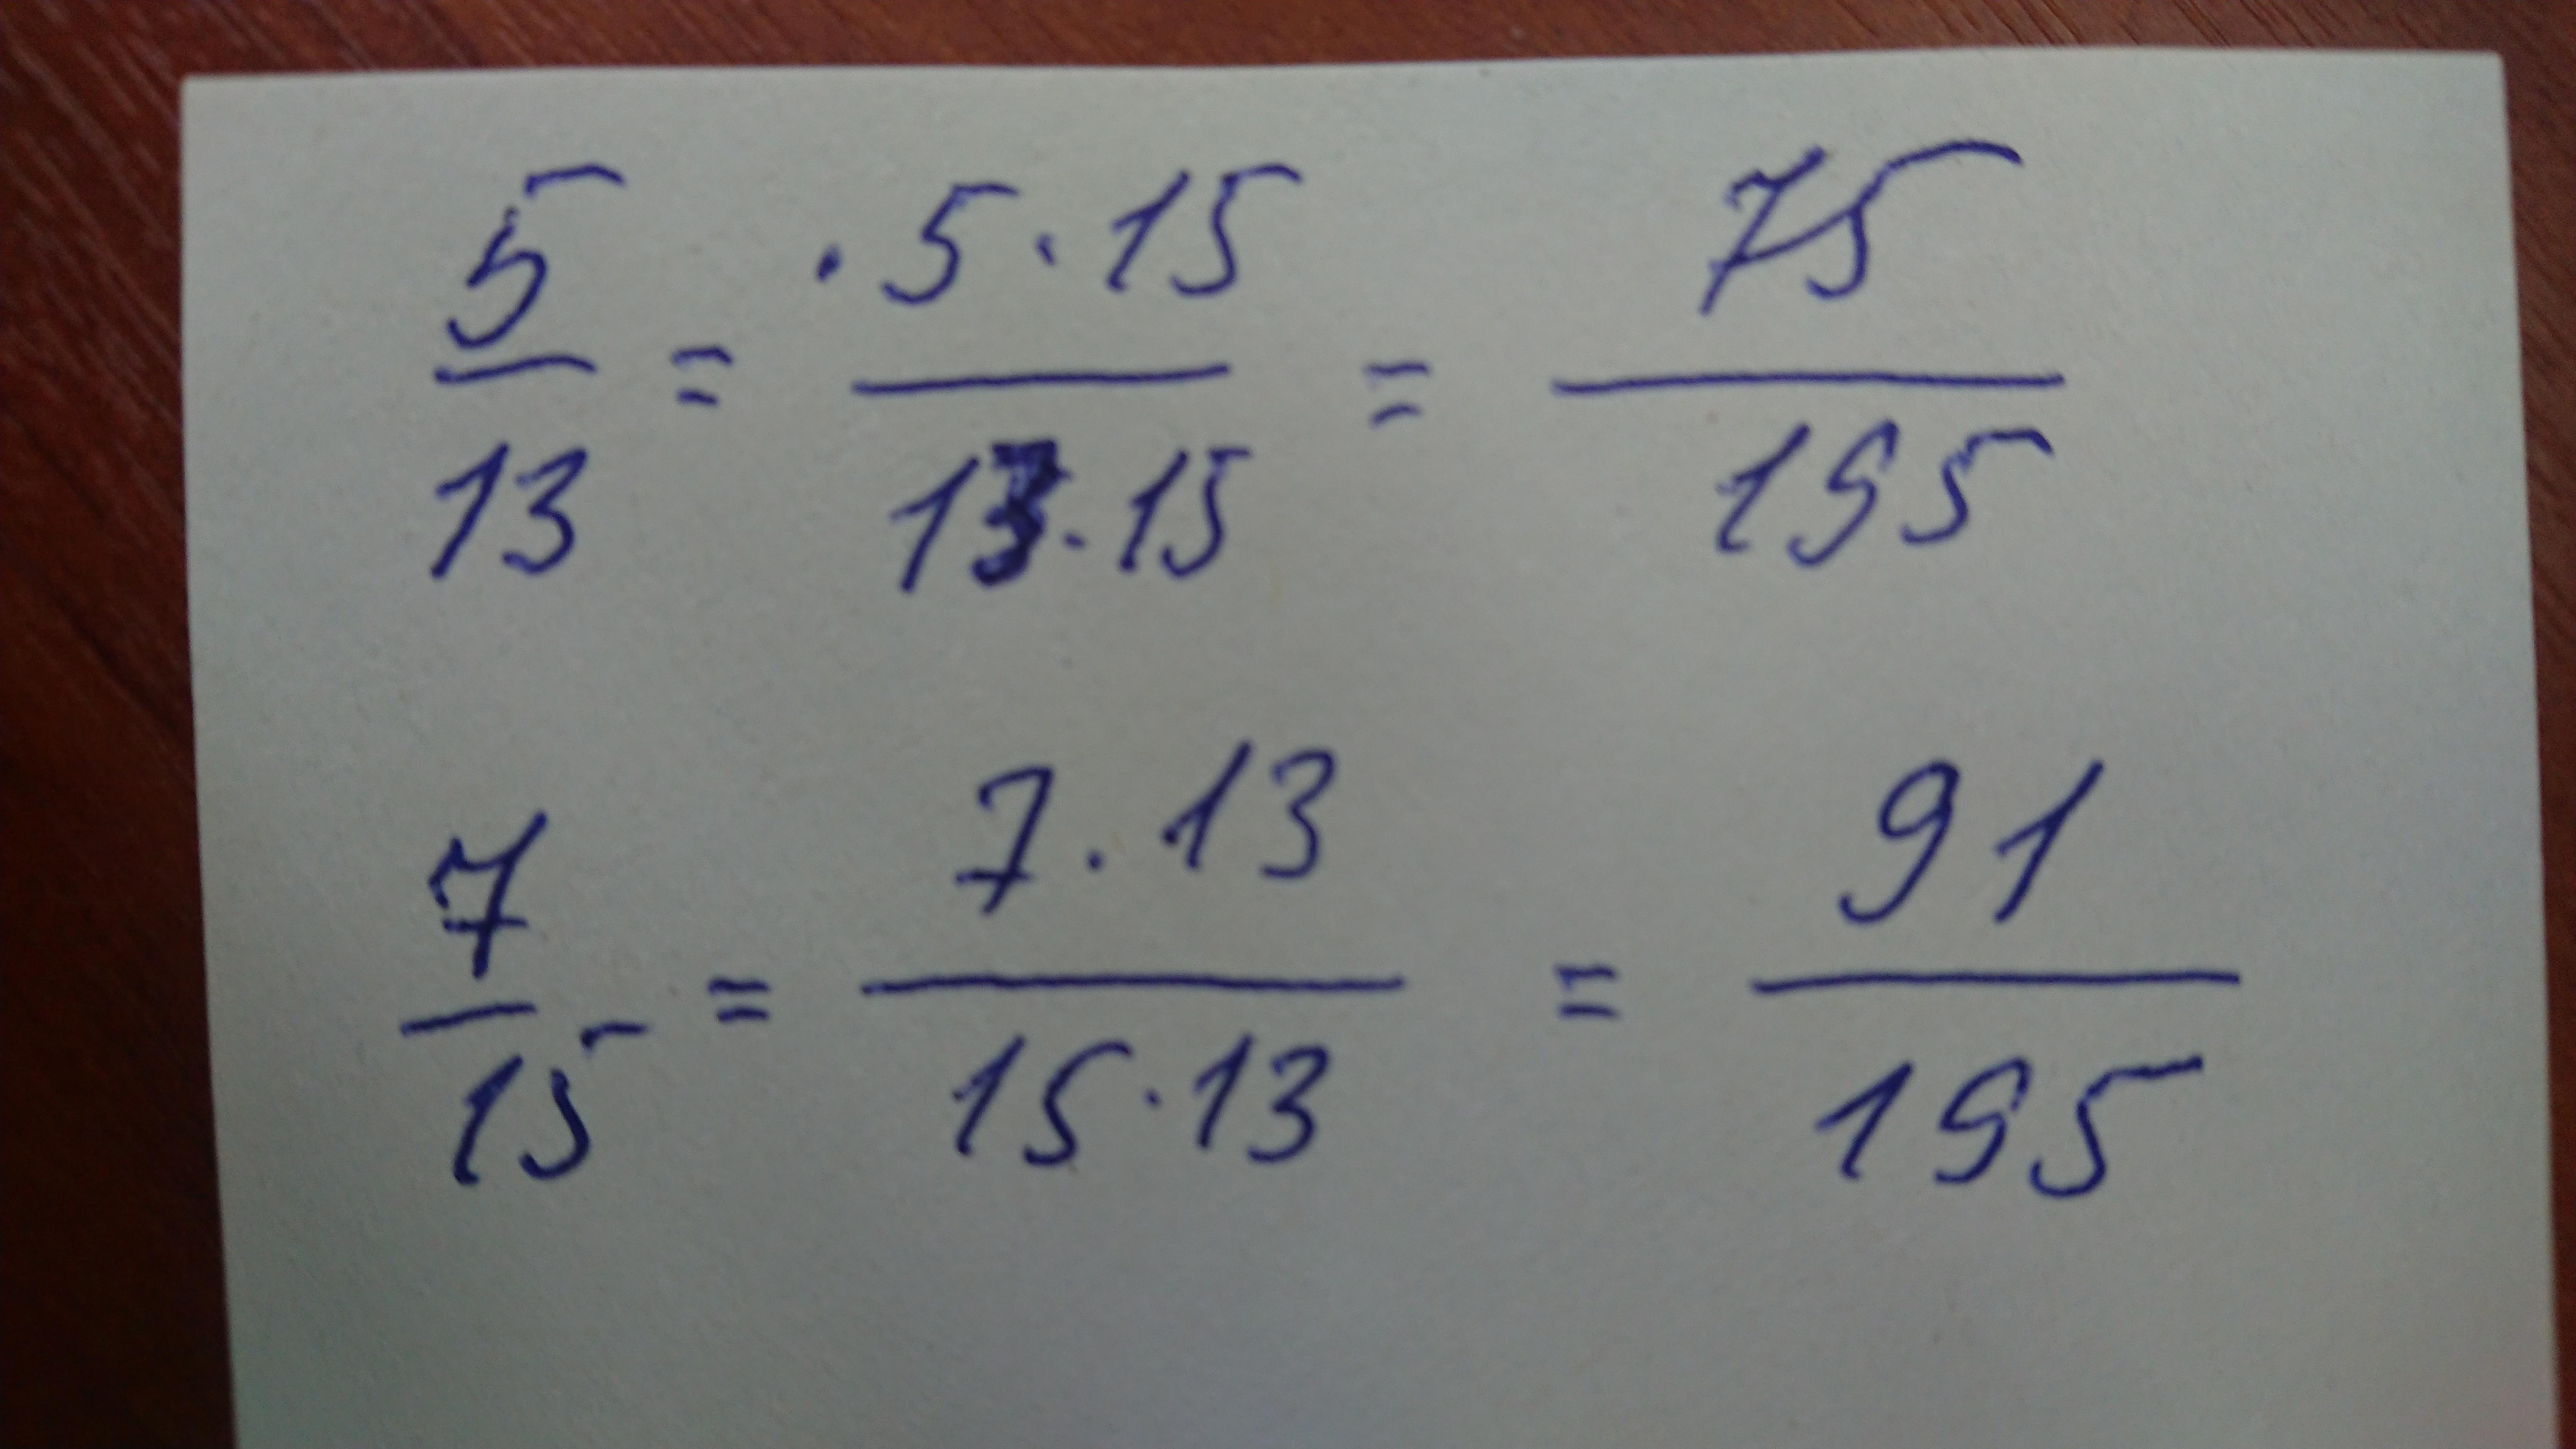 5/13 = 5·15/13·15 = 75/195
7/15 = 7·13/15·13 = 91/195